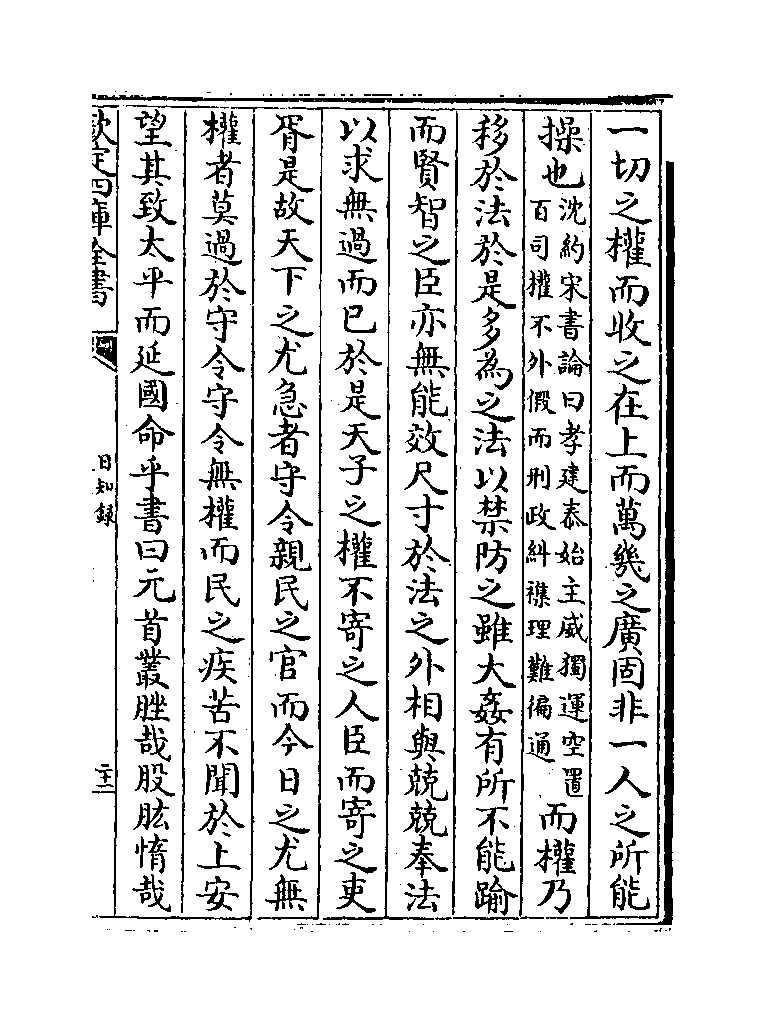 一切之權而收之在上而萬幾之廣固非一人之所能
操也沈約宋書論曰孝建泰始主威獨運空置
百司權不外假而刑政糾襍理難徧通而權乃
移於法於是多為之法以禁防之雖大姦有所不能踰
而賢智之臣亦無能效尺寸於法之外相與兢兢奉法
以求無過而已於是天子之權不寄之人臣而寄之吏
胥是故天下之尤急者守令親民之官而今日之尤無
權者莫過於守令守令無權而民之疾苦不聞於上安
望其致太平而延國命乎書曰元首叢脞哉股肱惰哉
欽定四庫全書
日知錄
二十二